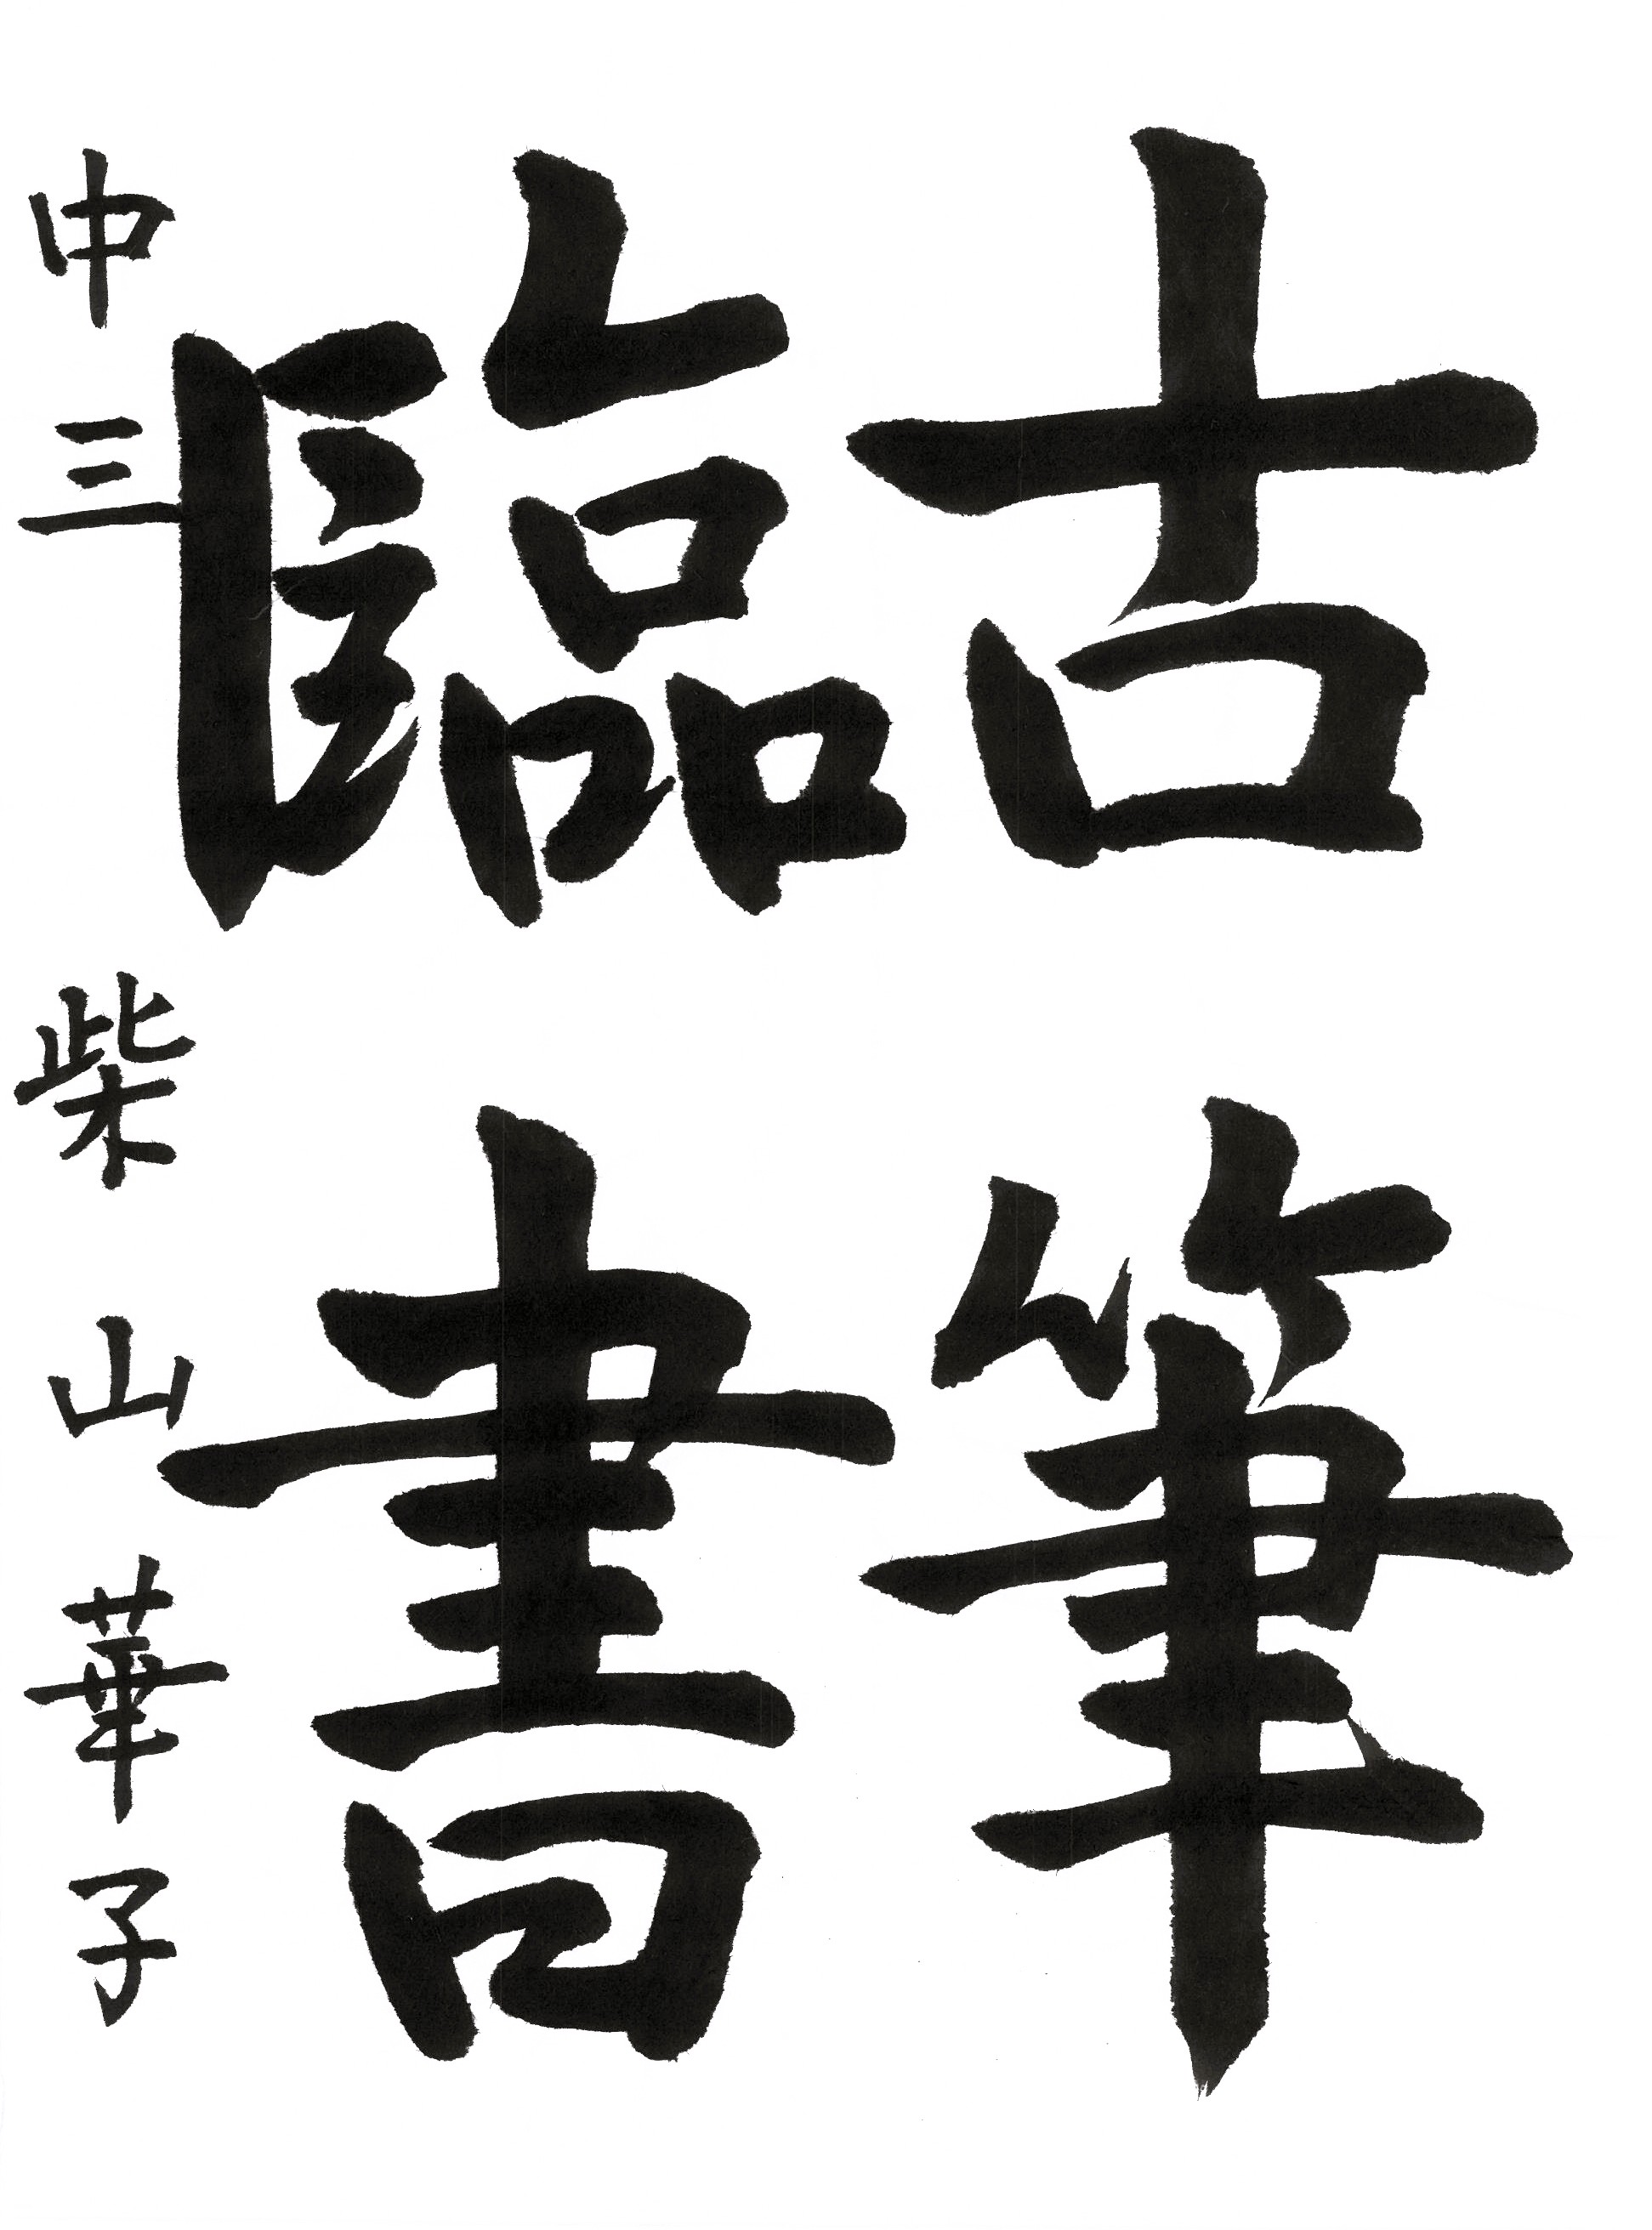 古筆
臨書
中三 柴山華子